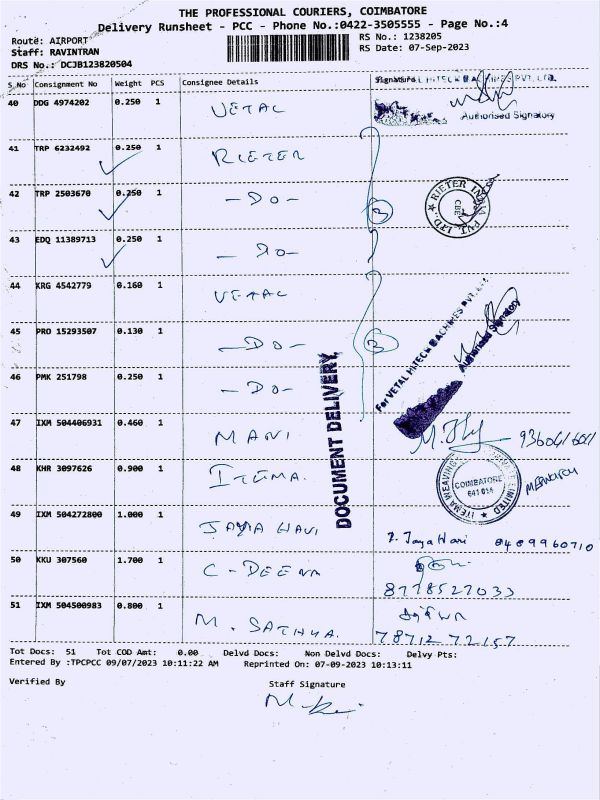 THE PROFESSIONAL COURIERS, COIMBATORE
Delivery Runsheet - PCC - Phone No.:0422-3505555 - Page No.:4
Route: AIRPORT
Staff: RAVINTRAN
DRS No.: DCJB123820504
RS No.: 1238205
RS Date: 07-Sep-2023
S_No Consignment No Weight PCS Consignee Details Signature
40 DDG 4974202 0.250 1 VETAL
Authorised Signatory
41 TRP 6232492 0.250 1 RIETER
42 TRP 2503670 0.250 1 -DO- 3
RIETER INDIA PVT. LTD. CBE
43 EDQ 11389713 0.250 1 -DO-
44 KRG 4542779 0.160 1 VETAL
45 PRO 15293507 0.130 1 -DO- 3
For VETAL HITECH MACHINES PVT. LTD.
Authorised Signatory
46 PMK 251798 0.250 1 -DO-
DOCUMENT DELIVERY,
47 IXM 504406931 0.460 1 MANI
48 KHR 3097626 0.900 1 ITEMA.
ITEMA WEAVING LIMITED COIMBATORE 641 014
49 IXM 504272800 1.000 1 JAYA HARI J. Jaya Hari 8489960710
50 KKU 307560 1.700 1 C-DEENA
8778527033
51 IXM 504500983 0.800 1 M. SATHYA.
78712 72157
Tot Docs: 51 Tot COD Amt: 0.00 Delvd Docs: Non Delvd Docs: Delvy Pts:
Entered By :TPCPCC 09/07/2023 10:11:22 AM Reprinted On: 07-09-2023 10:13:11
Verified By Staff Signature